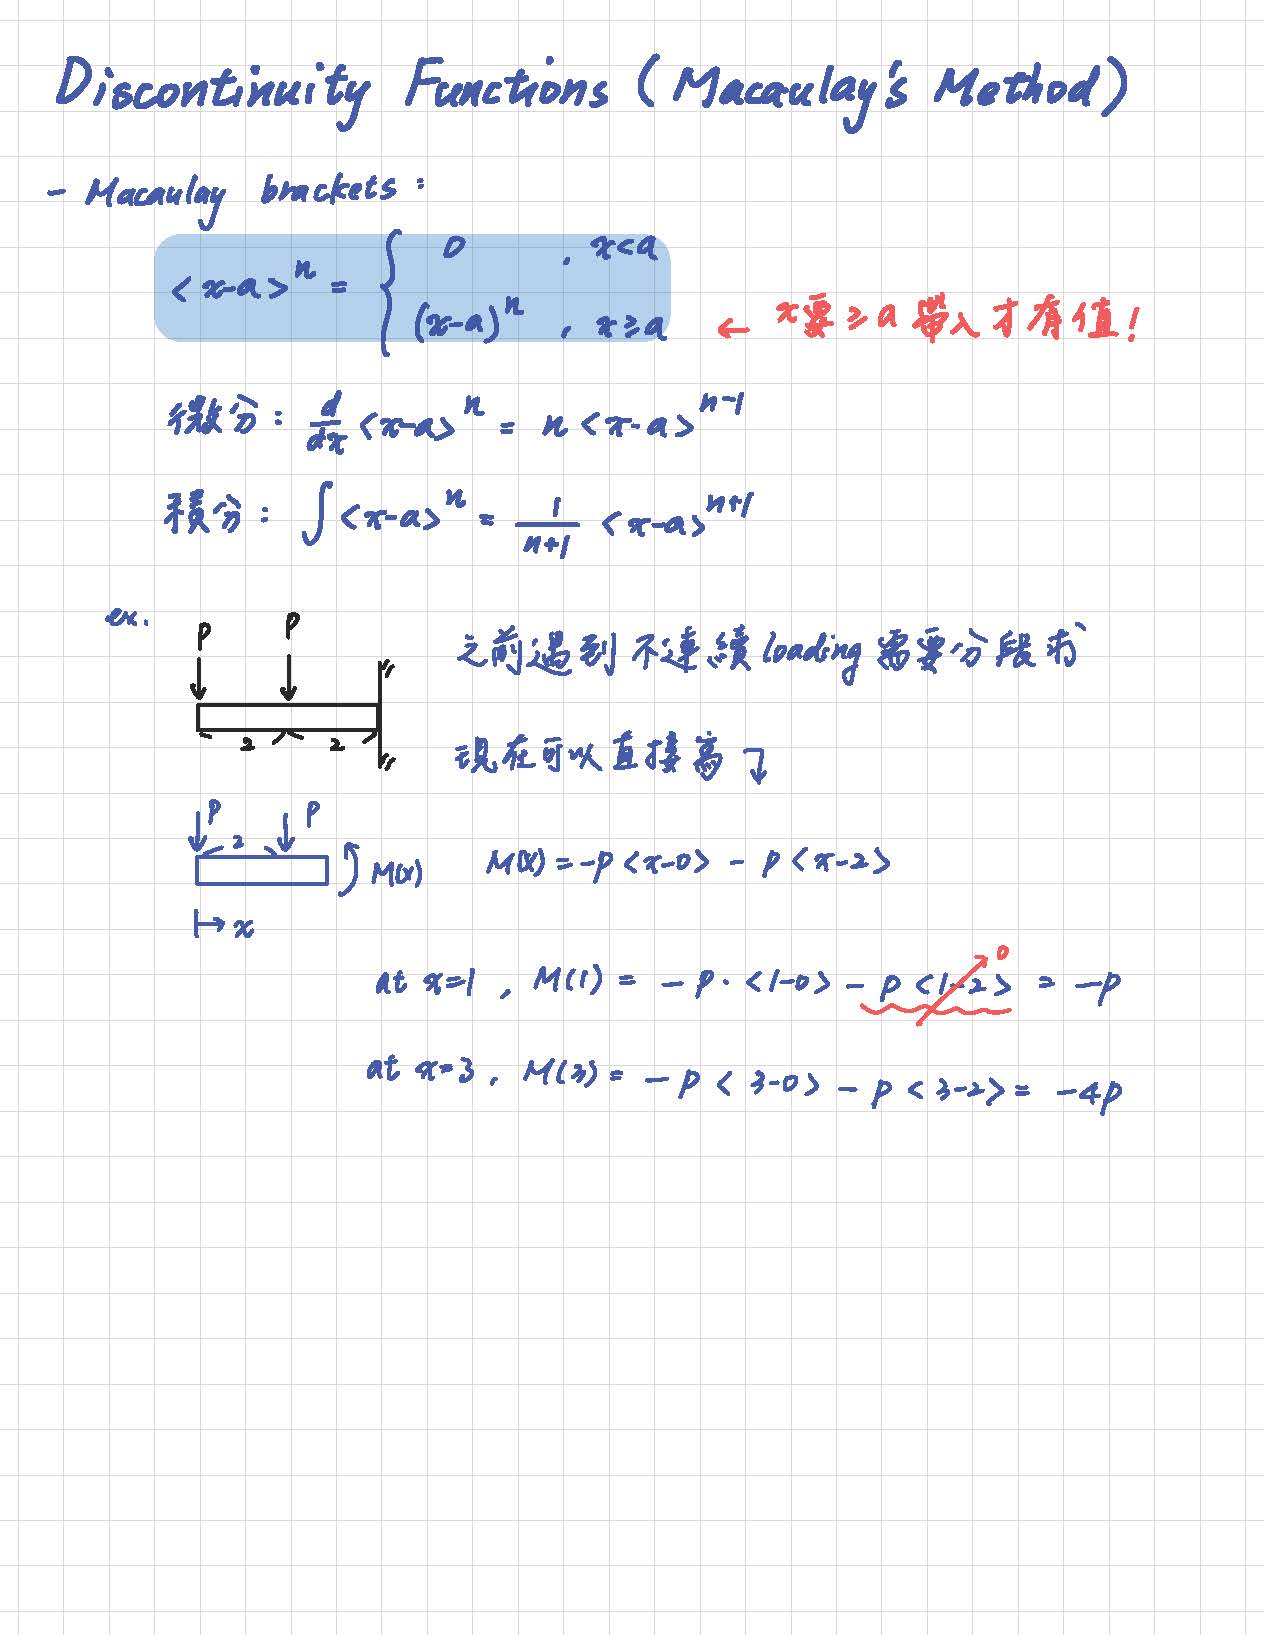 Discontinuity Functions (Macaulay's Method)
- Macaulay brackets:
<x-a>^n = { 0 , x<a
(x-a)^n , x≥a ← x要≥a 帶入才有值!
微分: d/dx <x-a>^n = n<x-a>^{n-1}
積分: ∫<x-a>^n = 1/(n+1) <x-a>^{n+1}
ex.
P P
之前遇到不連續loading需要分段求
2 2
現在可以直接寫
P P
2
M(x)
M(x) = -P<x-0> - P<x-2>
x
at x=1 , M(1) = -P·<1-0> - P<1-2> 0 = -P
at x=3 , M(3) = -P<3-0> - P<3-2> = -4P